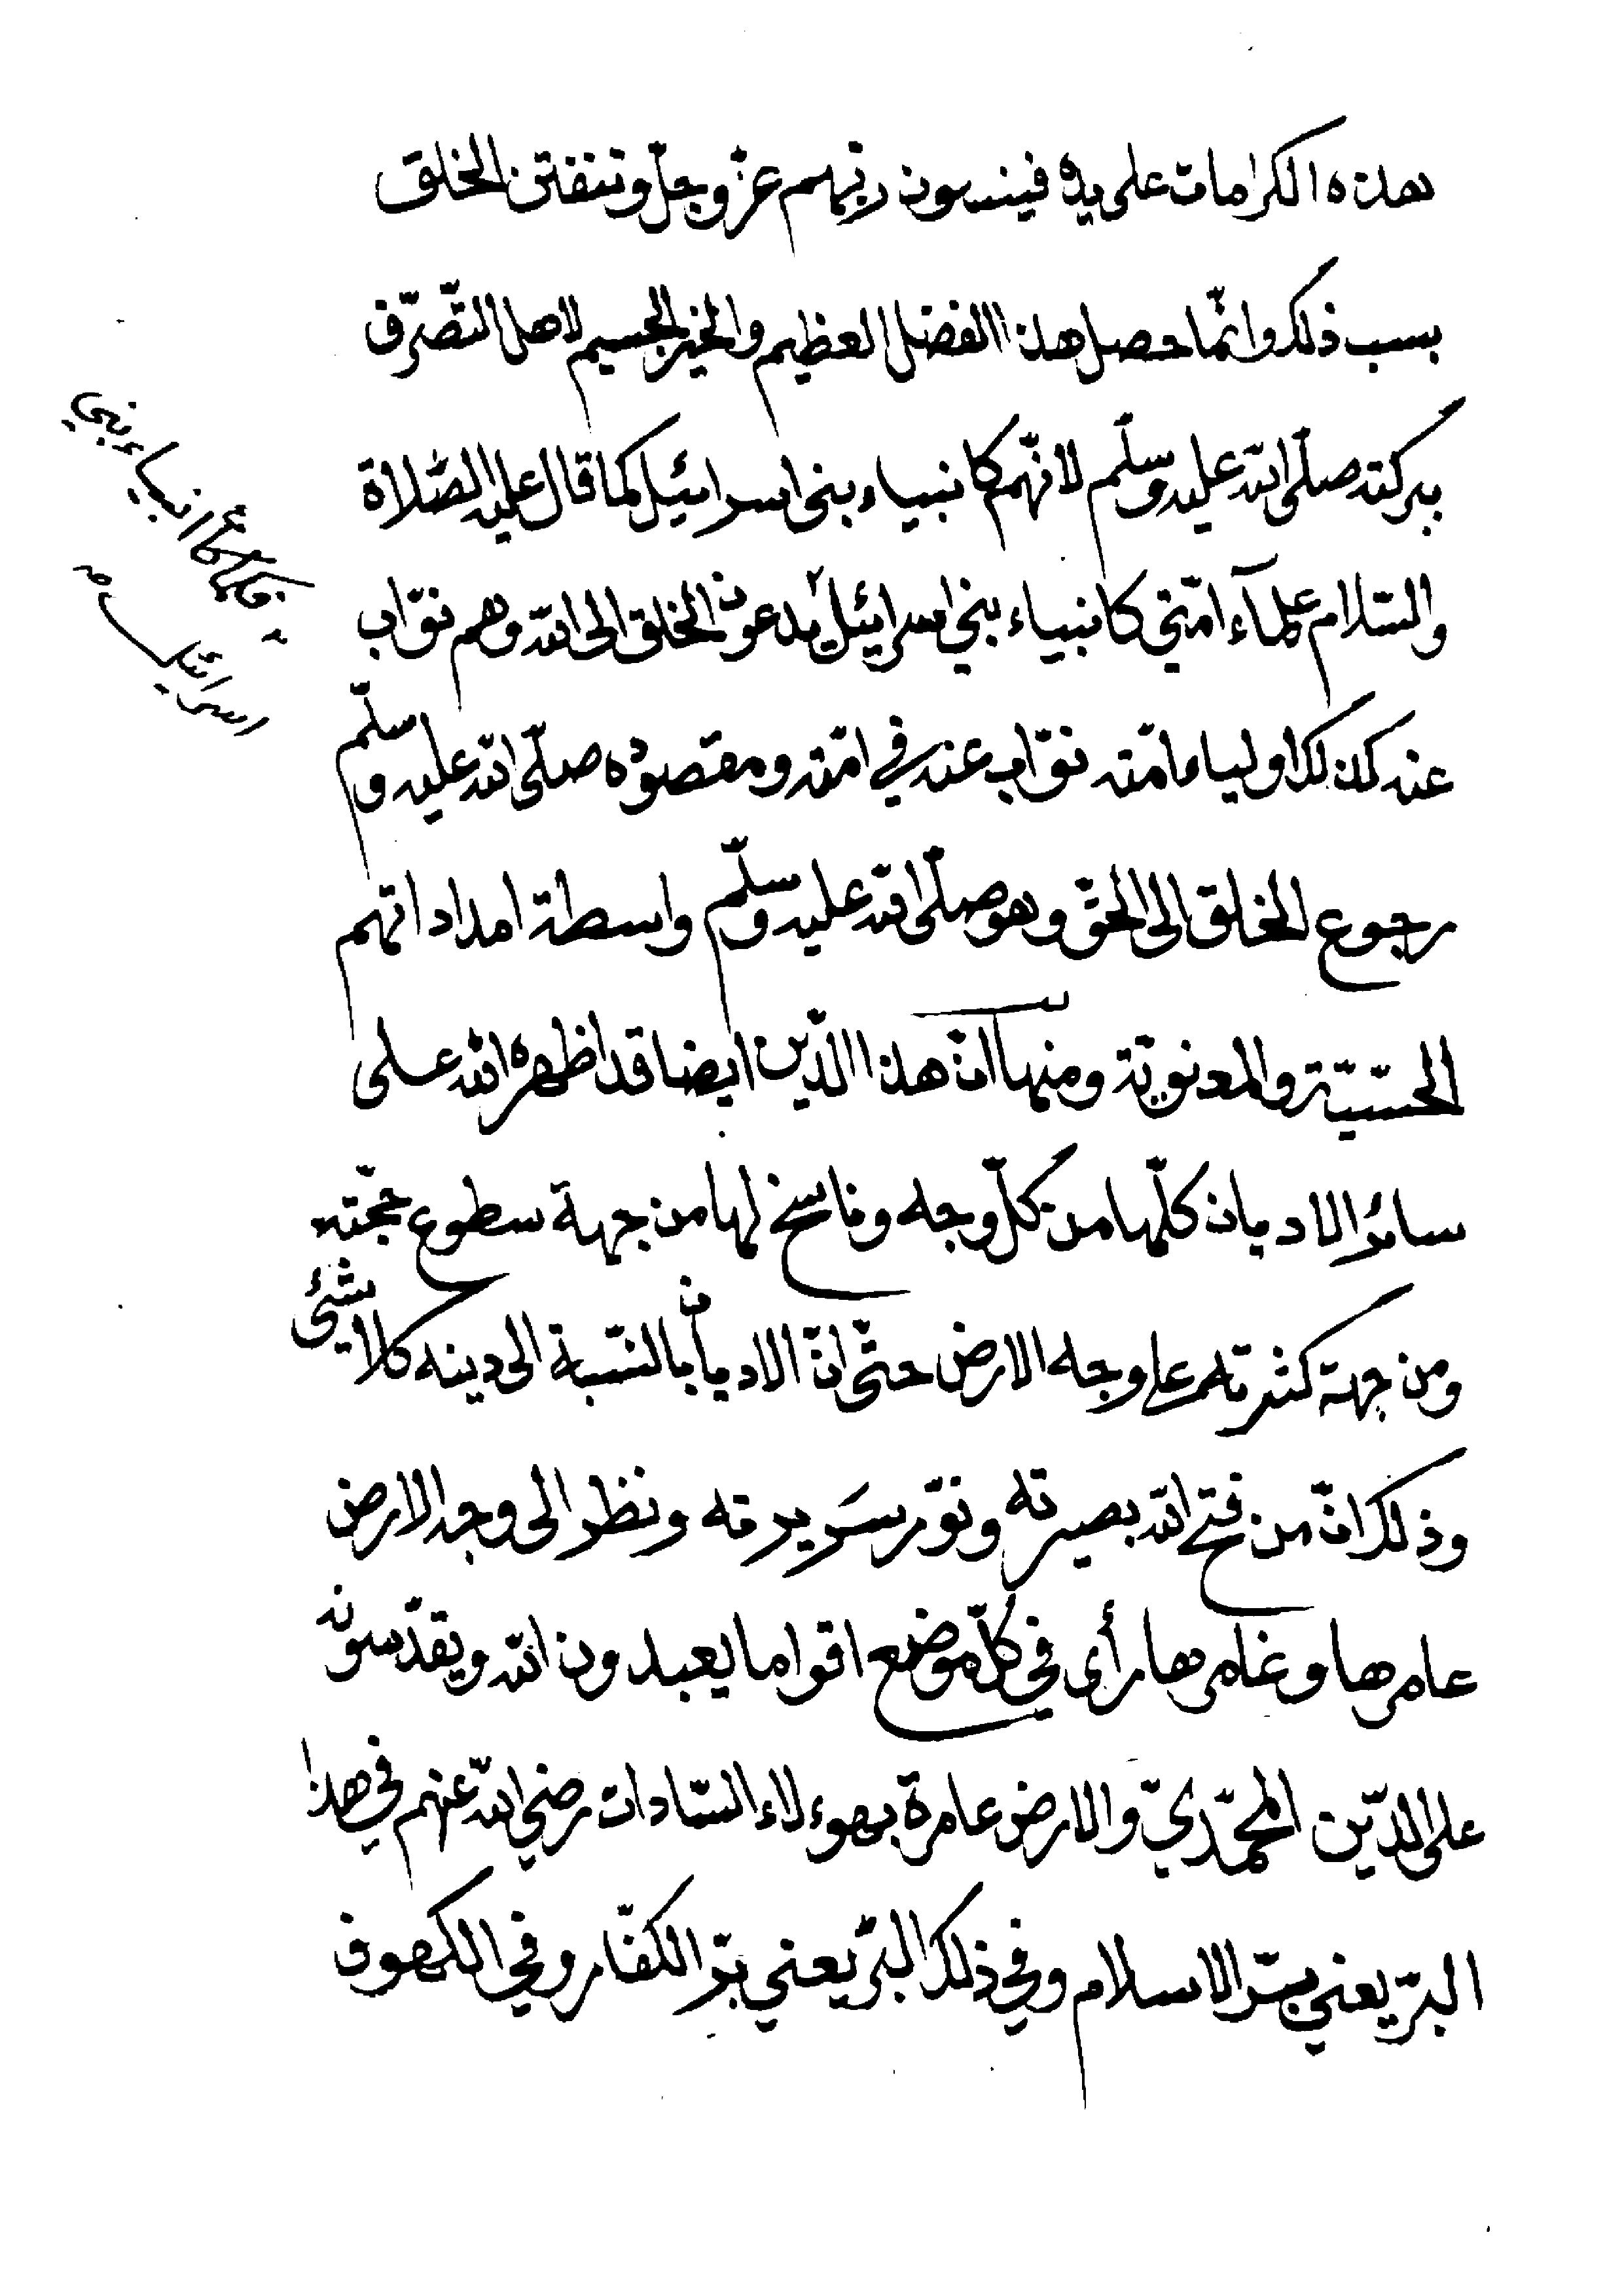 هذه الكرامات على يده فينسون ربّهم عزّ وجلّ وتنفتن الخلق
بسبب ذلك وانّما حصل هذا الفضل العظيم والخير الجسيم لاهل التّصرّف
ببركته صلّى الله عليه وسلّم لانّهم كانبياء بنى اسرائيل كما قال عليه الصّلاة
والسّلام علمآء امّتي كانبياء بني اسرائيل يدعون الخلق الى الله وهم نوّاب
عنه كذلك اولياء امّته نوّاب عنه في امّته ومقصوده صلّى الله عليه وسلّم
رجوع الخلق الى الحقّ وهو صلّى الله عليه وسلّم واسطة امداداتهم
الحسّيّة والمعنويّة ومنها انّ هذا الدّين ايضا قد اظهره الله على
سائر الاديان كلّها من كلّ وجه وناسخ لها من جهة سطوع حجّته
ومن جهة كثرته على وجه الارض حتّى انّ الاديان بالنّسبة الى دينه كلا شئى
وذلك انّ من فتح الله بصيرته ونوّر سَريرته ونظر الى وجه الارض
عامرها وغامرها رأى في كلّ موضع اقواما يعبدون الله ويقدّسونه
على الدّين المحمّديّ والارض عامرة بهوءلاء السّادات رضي الله عنهم في هذا
البرّ يعني برّ الاسلام وفي ذلك البرّ يعني برّ الكفّار وفي الكهوف
فكما أنّ انبياء بني
اسرائيل